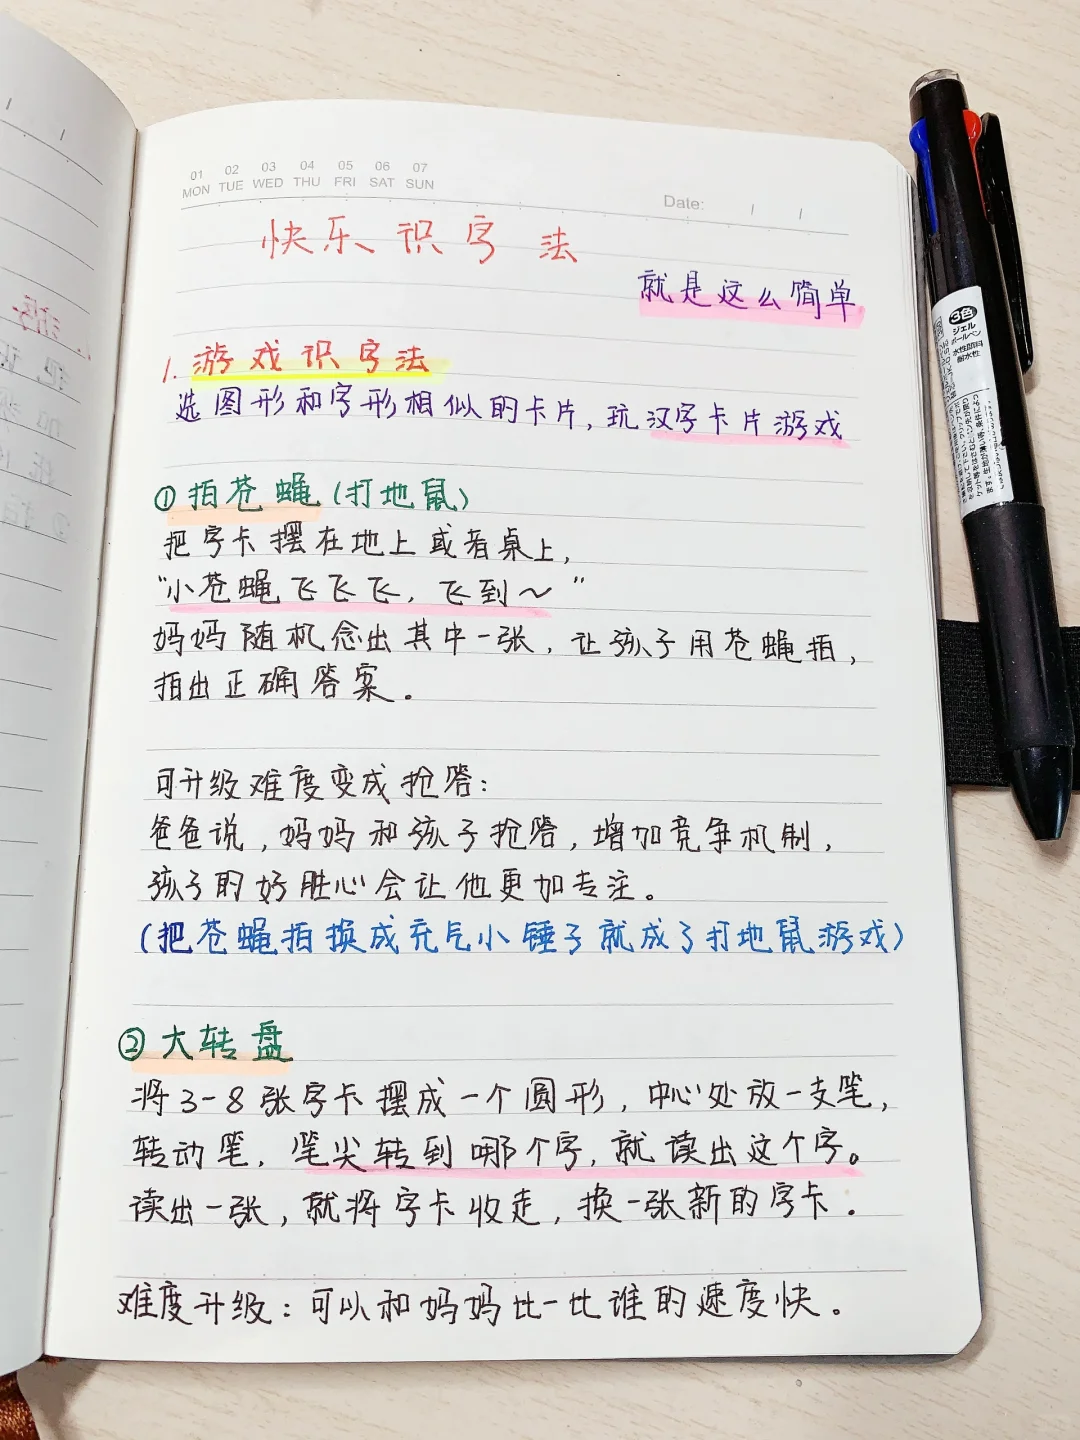 01 02 03 04 05 06 07
MON TUE WED THU FRI SAT SUN
Date: / /
快乐识字法
就是这么简单
1. 游戏识字法
选图形和字形相似的卡片，玩汉字卡片游戏
① 拍苍蝇（打地鼠）
把字卡摆在地上或者桌上，
“小苍蝇飞飞飞，飞到～”
妈妈随机念出其中一张，让孩子用苍蝇拍，
拍出正确答案。
可升级难度变成抢答：
爸爸说，妈妈和孩子抢答，增加竞争机制，
孩子的好胜心会让他更加专注。
（把苍蝇拍换成充气小锤子就成了打地鼠游戏）
② 大转盘
将3-8张字卡摆成一个圆形，中心处放一支笔，
转动笔，笔尖转到哪个字，就读出这个字。
读出一张，就将字卡收走，换一张新的字卡.
难度升级：可以和妈妈比一比谁的速度快。
3色
ジェル
ボールペン
水性顔料
耐水性